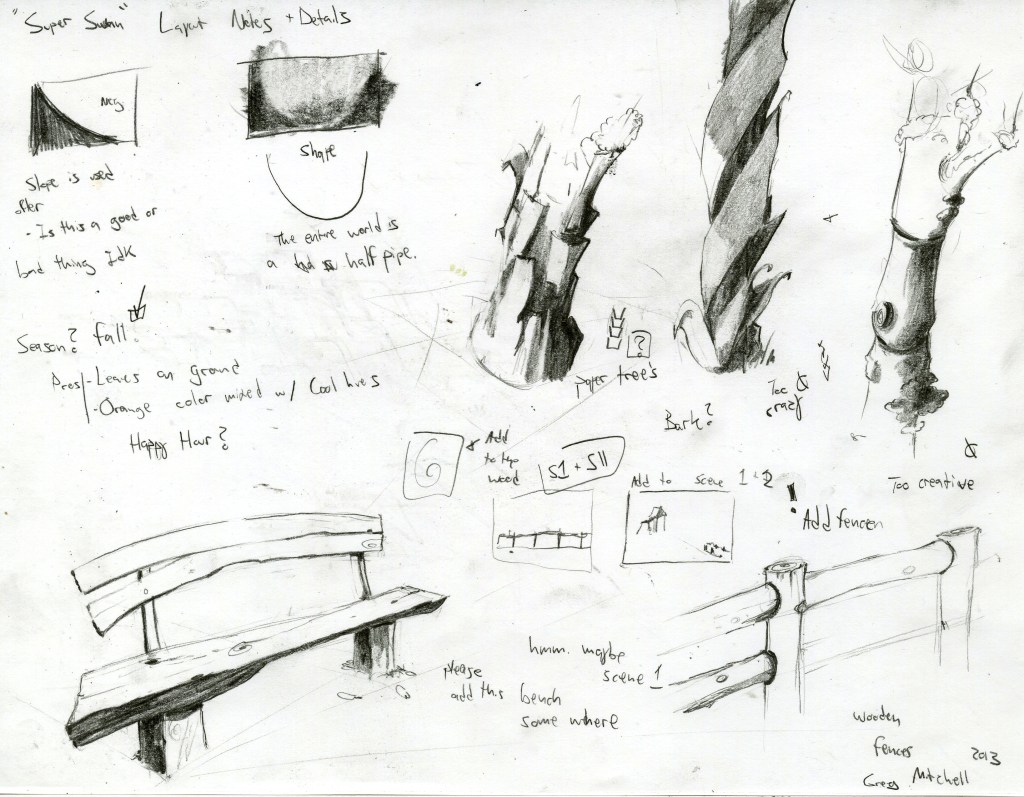 "Super Swan" Layout Notes + Details
Neg.
Shape
Slope is used
after
- Is this a good or
bad thing IdK
The entire world is
a half pipe.
Season? fall.
Pros - Leaves on ground
- Orange color mixed w/ Cool hues
Happy Hour?
?
paper tree's
Bark?
Too
crazy
Too creative
Add
to top
wood
S1 + S11
Add to scene 1 + 2
! Add fencen
hmm. maybe
scene 1
please
add this bench
some where
wooden
fences
2013
Greg Mitchell